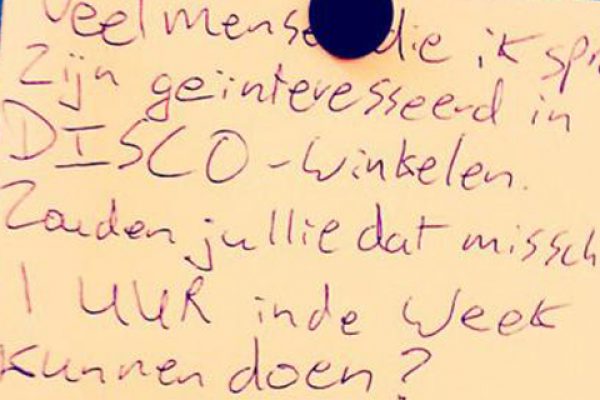 Veel mense die ik spr
Zijn geïnteresseerd in
DISCO-winkelen.
Zouden jullie dat missch
1 UUR in de week
kunnen doen?